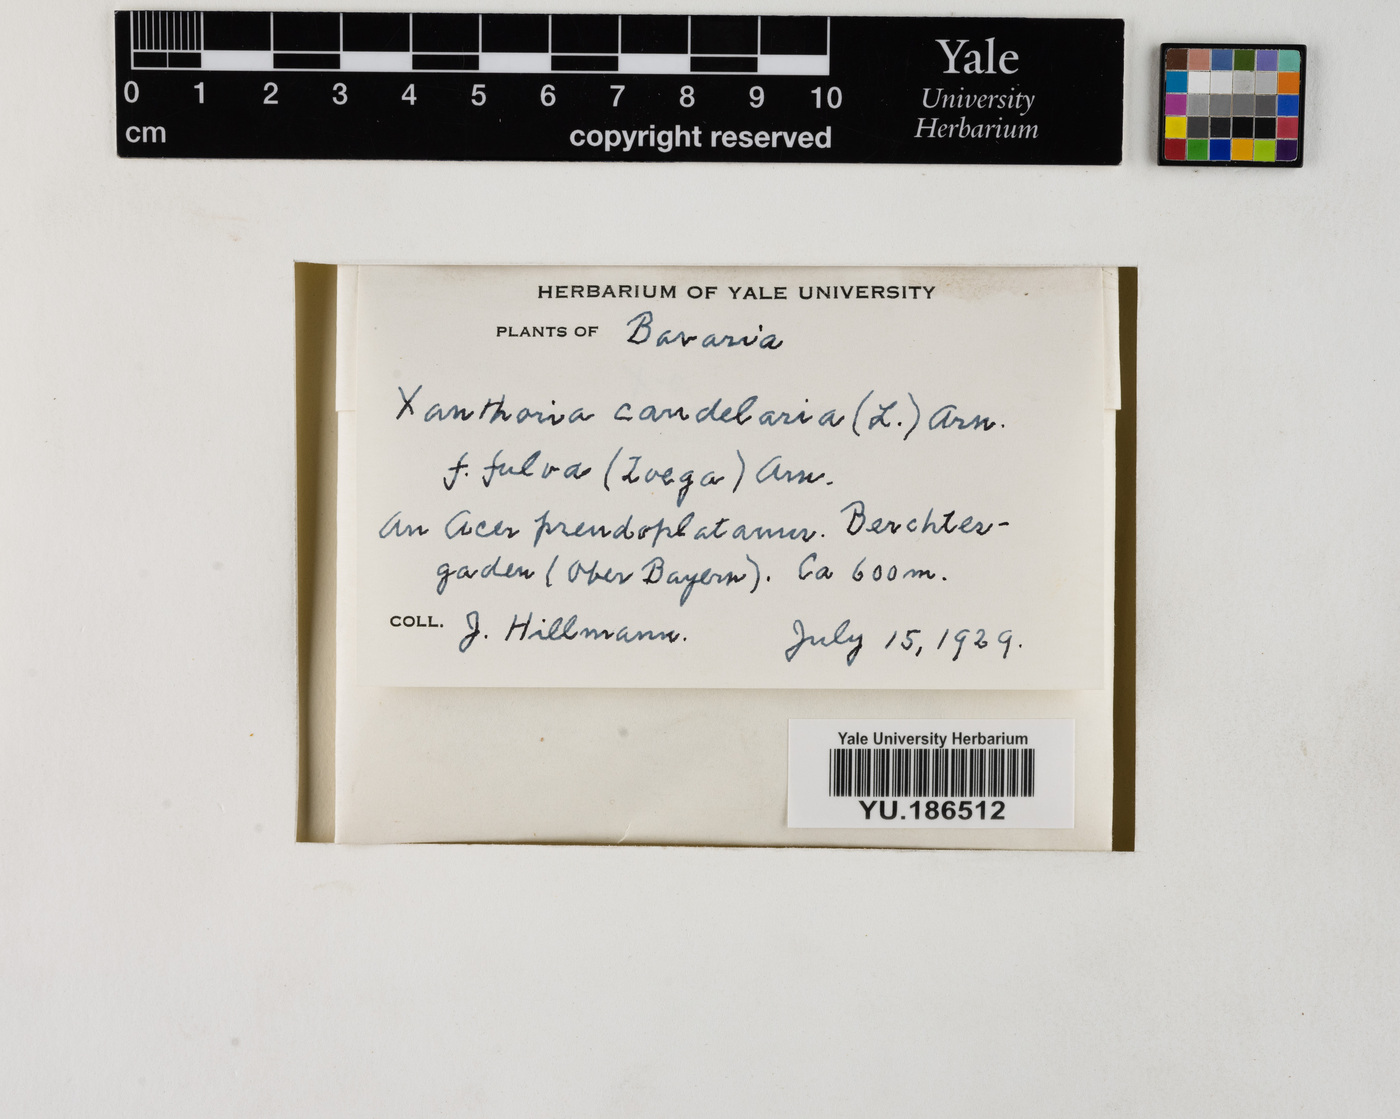 0 1 2 3 4 5 6 7 8 9 10
cm
copyright reserved
Yale
University
Herbarium
HERBARIUM OF YALE UNIVERSITY
PLANTS OF Bavaria
Xanthoria candelaria (L.) Arn.
f. fulva (Zoega) Arn.
An Acer pseudoplatanus. Berchtes-
gaden (Ober Bayern). Ca 600 m.
COLL. J. Hillmann. July 15, 1929.
Yale University Herbarium
YU.186512